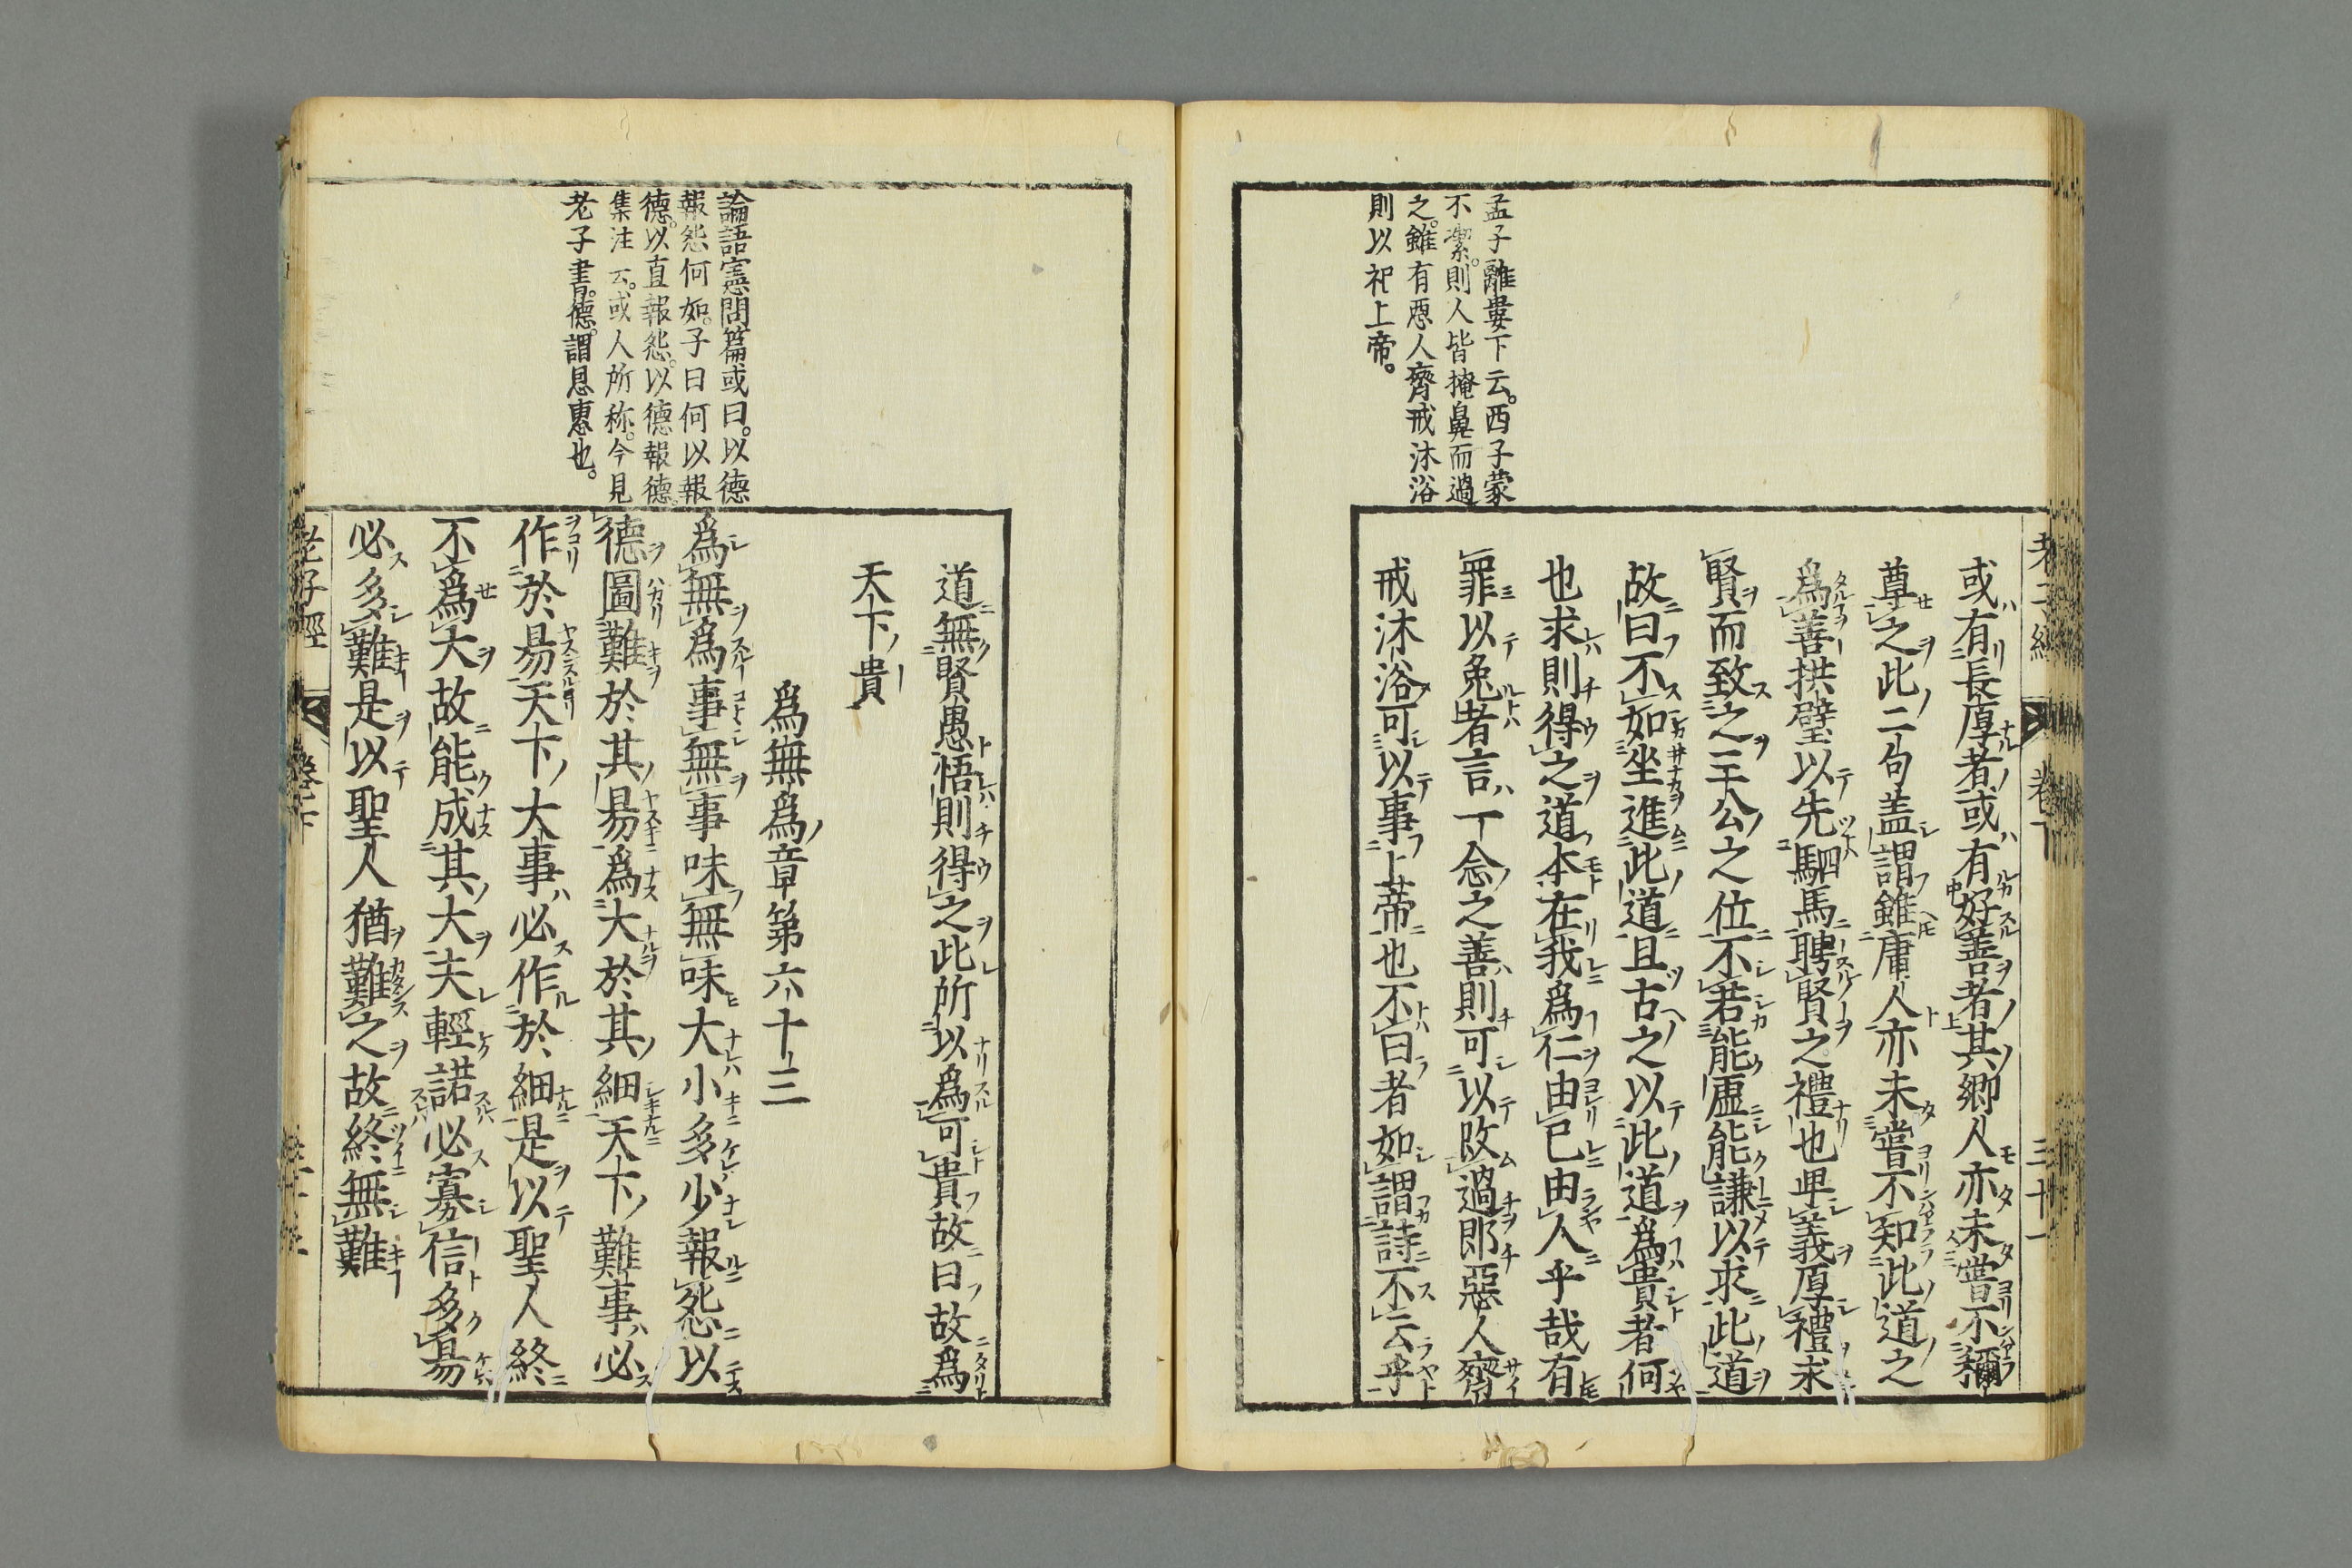 孟子離婁下云。西子蒙
不潔。則人皆掩鼻而過
之。雖有惡人齊戒沐浴
則以祀上帝。
卷下
三十一
或有長厚者或有好善者其鄉人亦未嘗不稱
尊之此二句盖謂雖庸人亦未嘗不知此道之
爲善拱璧以先駟馬聘賢之禮也卑義厚禮求
賢而致之三公之位不若能虛能謙以求此道
故曰不如坐進此道且古之以此道爲貴者何
也求則得之道本在我爲仁由已由人乎哉有
罪以免者言一念之善則可以改過即惡人齊
戒沐浴可以事上帝也不曰者如謂詩不云乎
論語憲問篇或曰。以德
報怨何如。子曰何以報
德。以直報怨。以德報德。
集注云。或人所称。今見
老子書。德。謂恩惠也。
道無賢愚悟則得之此所以爲可貴故曰故爲
天下貴
爲無爲章第六十三
爲無爲事無事味無味大小多少報怨以
德圖難於其易爲大於其細天下難事必
作於易天下大事必作於細是以聖人終
不爲大故能成其大夫輕諾必寡信多易
必多難是以聖人猶難之故終無難
老子經
卷下